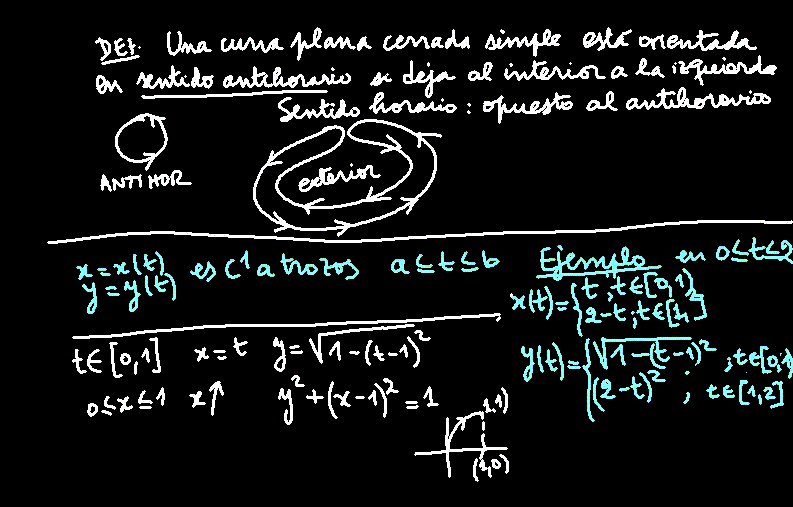 DEf. Una curva plana cerrada simple está orientada
en sentido antihorario si deja al interior a la izquierda
Sentido horario : opuesto al antihorario
ANTIHOR
exterior
x=x(t)
y=y(t)
es C¹ a trozos a≤t≤b
Ejemplo en 0≤t≤2
x(t)={t ; t∈[0,1)
2-t ; t∈[1,2]
t∈[0,1] x=t y=√1-(t-1)²
y(t)={√1-(t-1)² ; t∈[0,1)
(2-t)² ; t∈[1,2]
0≤x≤1 x↑ y²+(x-1)²=1
1,1)
(1,0)